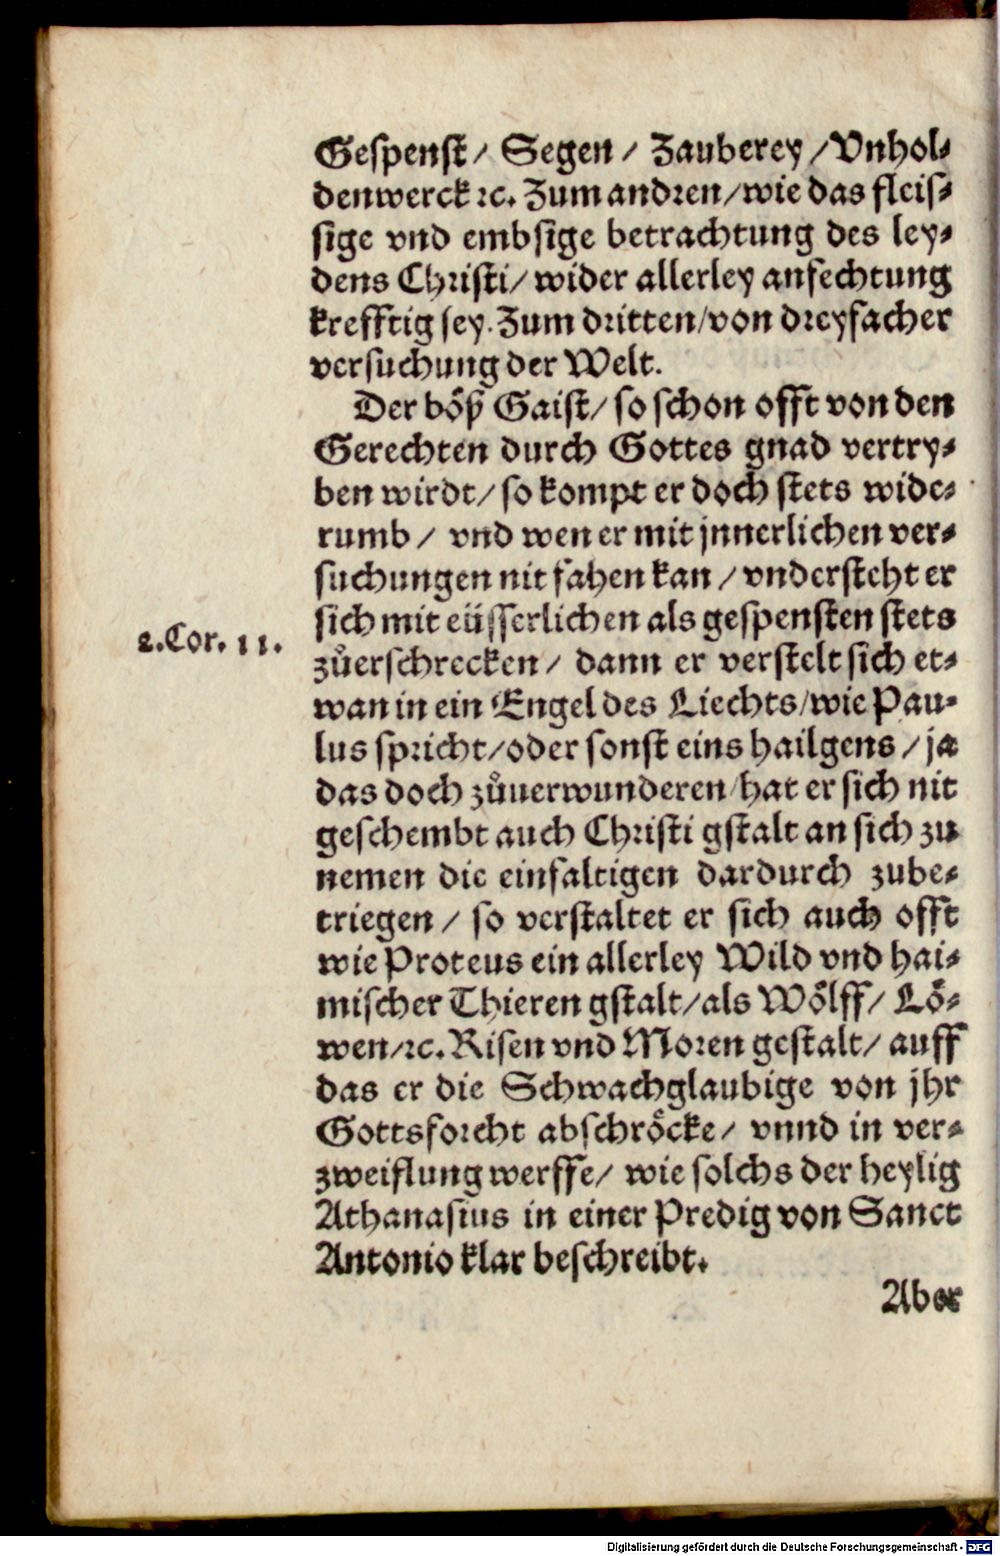 Gespenst/ Segen/ Zauberey/Vnhol-
denwerck ꝛc. Zum andren/wie das fleis-
sige vnd embsige betrachtung des ley-
dens Christi/ wider allerley anfechtung
krefftig sey. Zum dritten/von dreyfacher
versuchung der Welt.
Der böß Gaist/ so schon offt von den
Gerechten durch Gottes gnad vertry-
ben wirdt/ so kompt er doch stets wide-
rumb/ vnd wen er mit jnnerlichen ver-
suchungen nit fahen kan/ vndersteht er
sich mit eüsserlichen als gespensten stets
2.Cor. 11.
zůerschrecken/ dann er verstelt sich et-
wan in ein Engel des Liechts/wie Pau-
lus spricht/oder sonst eins hailgens/ ja
das doch zůuerwunderen/hat er sich nit
geschembt auch Christi gstalt an sich zu
nemen die einfaltigen dardurch zube-
triegen/ so verstaltet er sich auch offt
wie Proteus ein allerley Wild vnd hai-
mischer Thieren gstalt/als Wölff/ Lö-
wen/ꝛc. Risen vnd Moren gestalt/ auff
das er die Schwachglaubige von jhr
Gottsforcht abschröcke/ vnnd in ver-
zweiflung werffe/ wie solchs der heylig
Athanasius in einer Predig von Sanct
Antonio klar beschreibt.
Aber
Digitalisierung gefördert durch die Deutsche Forschungsgemeinschaft - DFG